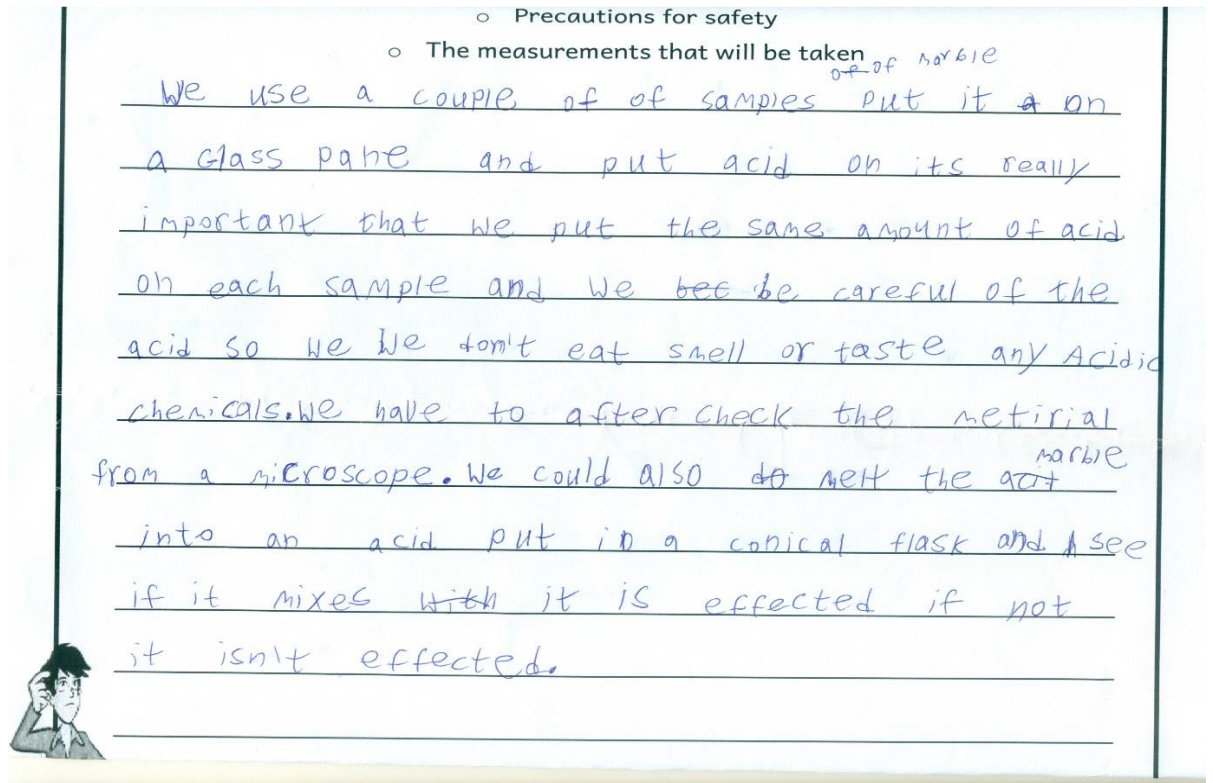 ○ Precautions for safety
○ The measurements that will be taken
of of marble
We use a couple of of samples put it a on
a Glass pane and put acid on its really
important that we put the same amount of acid
on each sample and we bec be careful of the
acid so we We don't eat smell or taste any Acidic
chemicals. We have to after check the metirial
marble
from a microscope. We could also do melt the
into an acid put in a conical flask and see
if it mixes with it is effected if not
it isn't effected.